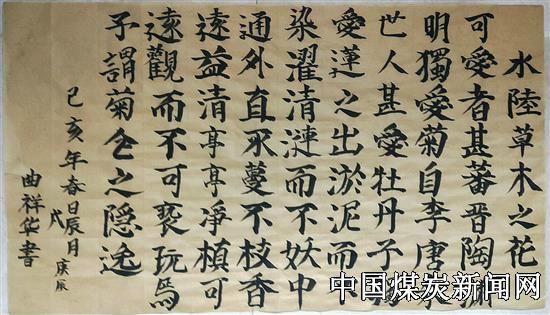 水陸草木之花
可愛者甚蕃晋陶淵
明獨愛菊自李唐来
世人甚愛牡丹予獨
愛蓮之出淤泥而
染濯清漣而不妖中
通外直不蔓不枝香
遠益清亭亭凈植可
遠觀而不可亵玩焉
予謂菊花之隐逸
己亥年春日辰月庚辰
戊
曲祥华書
中国煤炭新闻网